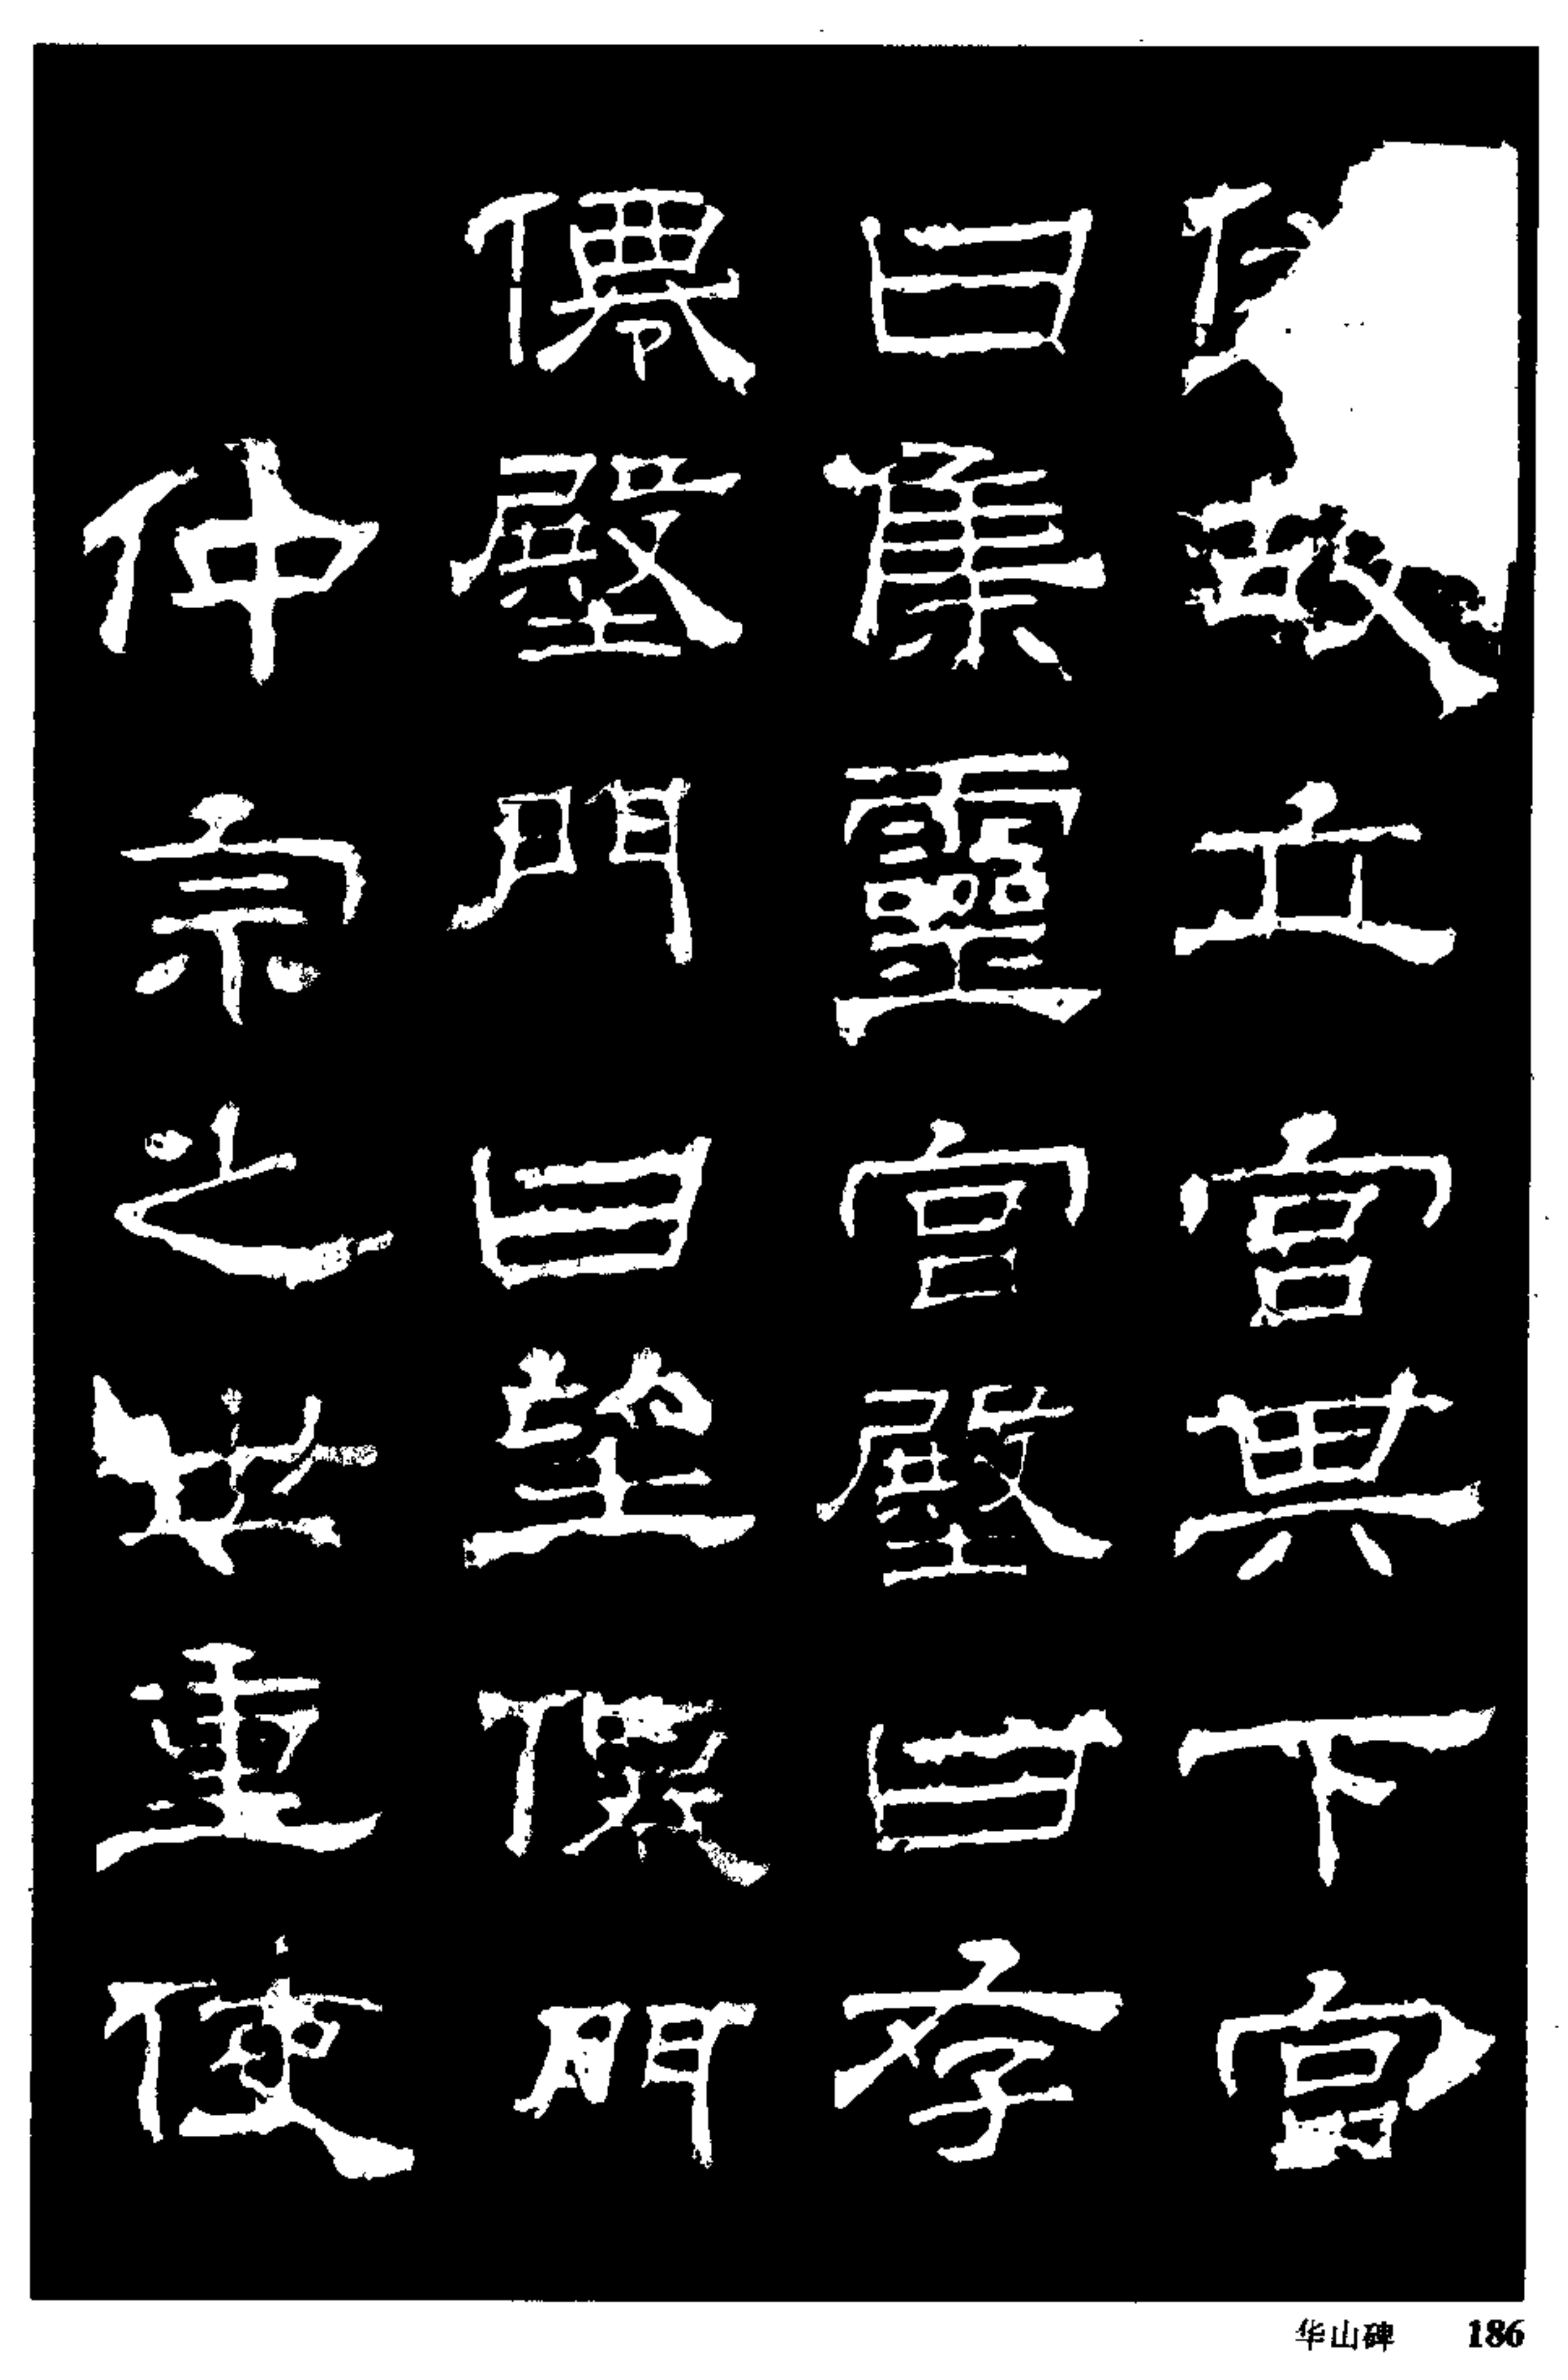 立宮其下宮
曰集靈宮殿曰存
僊殿門曰望僊門
仲宗之世重使
华山碑 186